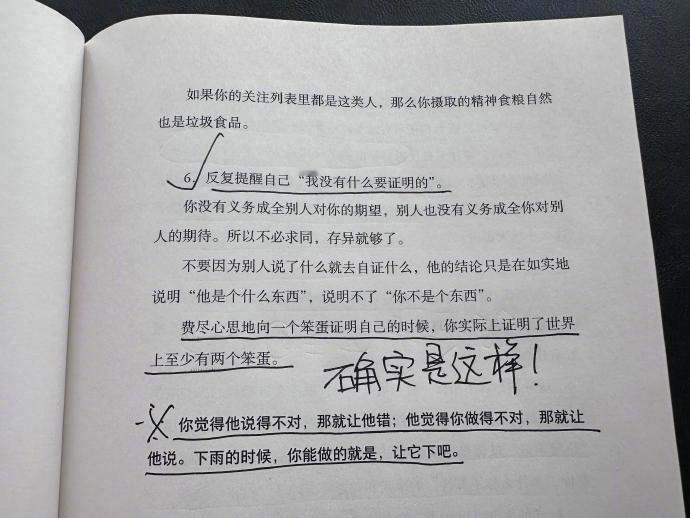 如果你的关注列表里都是这类人，那么你摄取的精神食粮自然
也是垃圾食品。
6. 反复提醒自己“我没有什么要证明的”。
你没有义务成全别人对你的期望，别人也没有义务成全你对别
人的期待。所以不必求同，存异就够了。
不要因为别人说了什么就去自证什么，他的结论只是在如实地
说明“他是个什么东西”，说明不了“你不是个东西”。
费尽心思地向一个笨蛋证明自己的时候，你实际上证明了世界
上至少有两个笨蛋。
确实是这样！
你觉得他说得不对，那就让他错；他觉得你做得不对，那就让
他说。下雨的时候，你能做的就是，让它下吧。